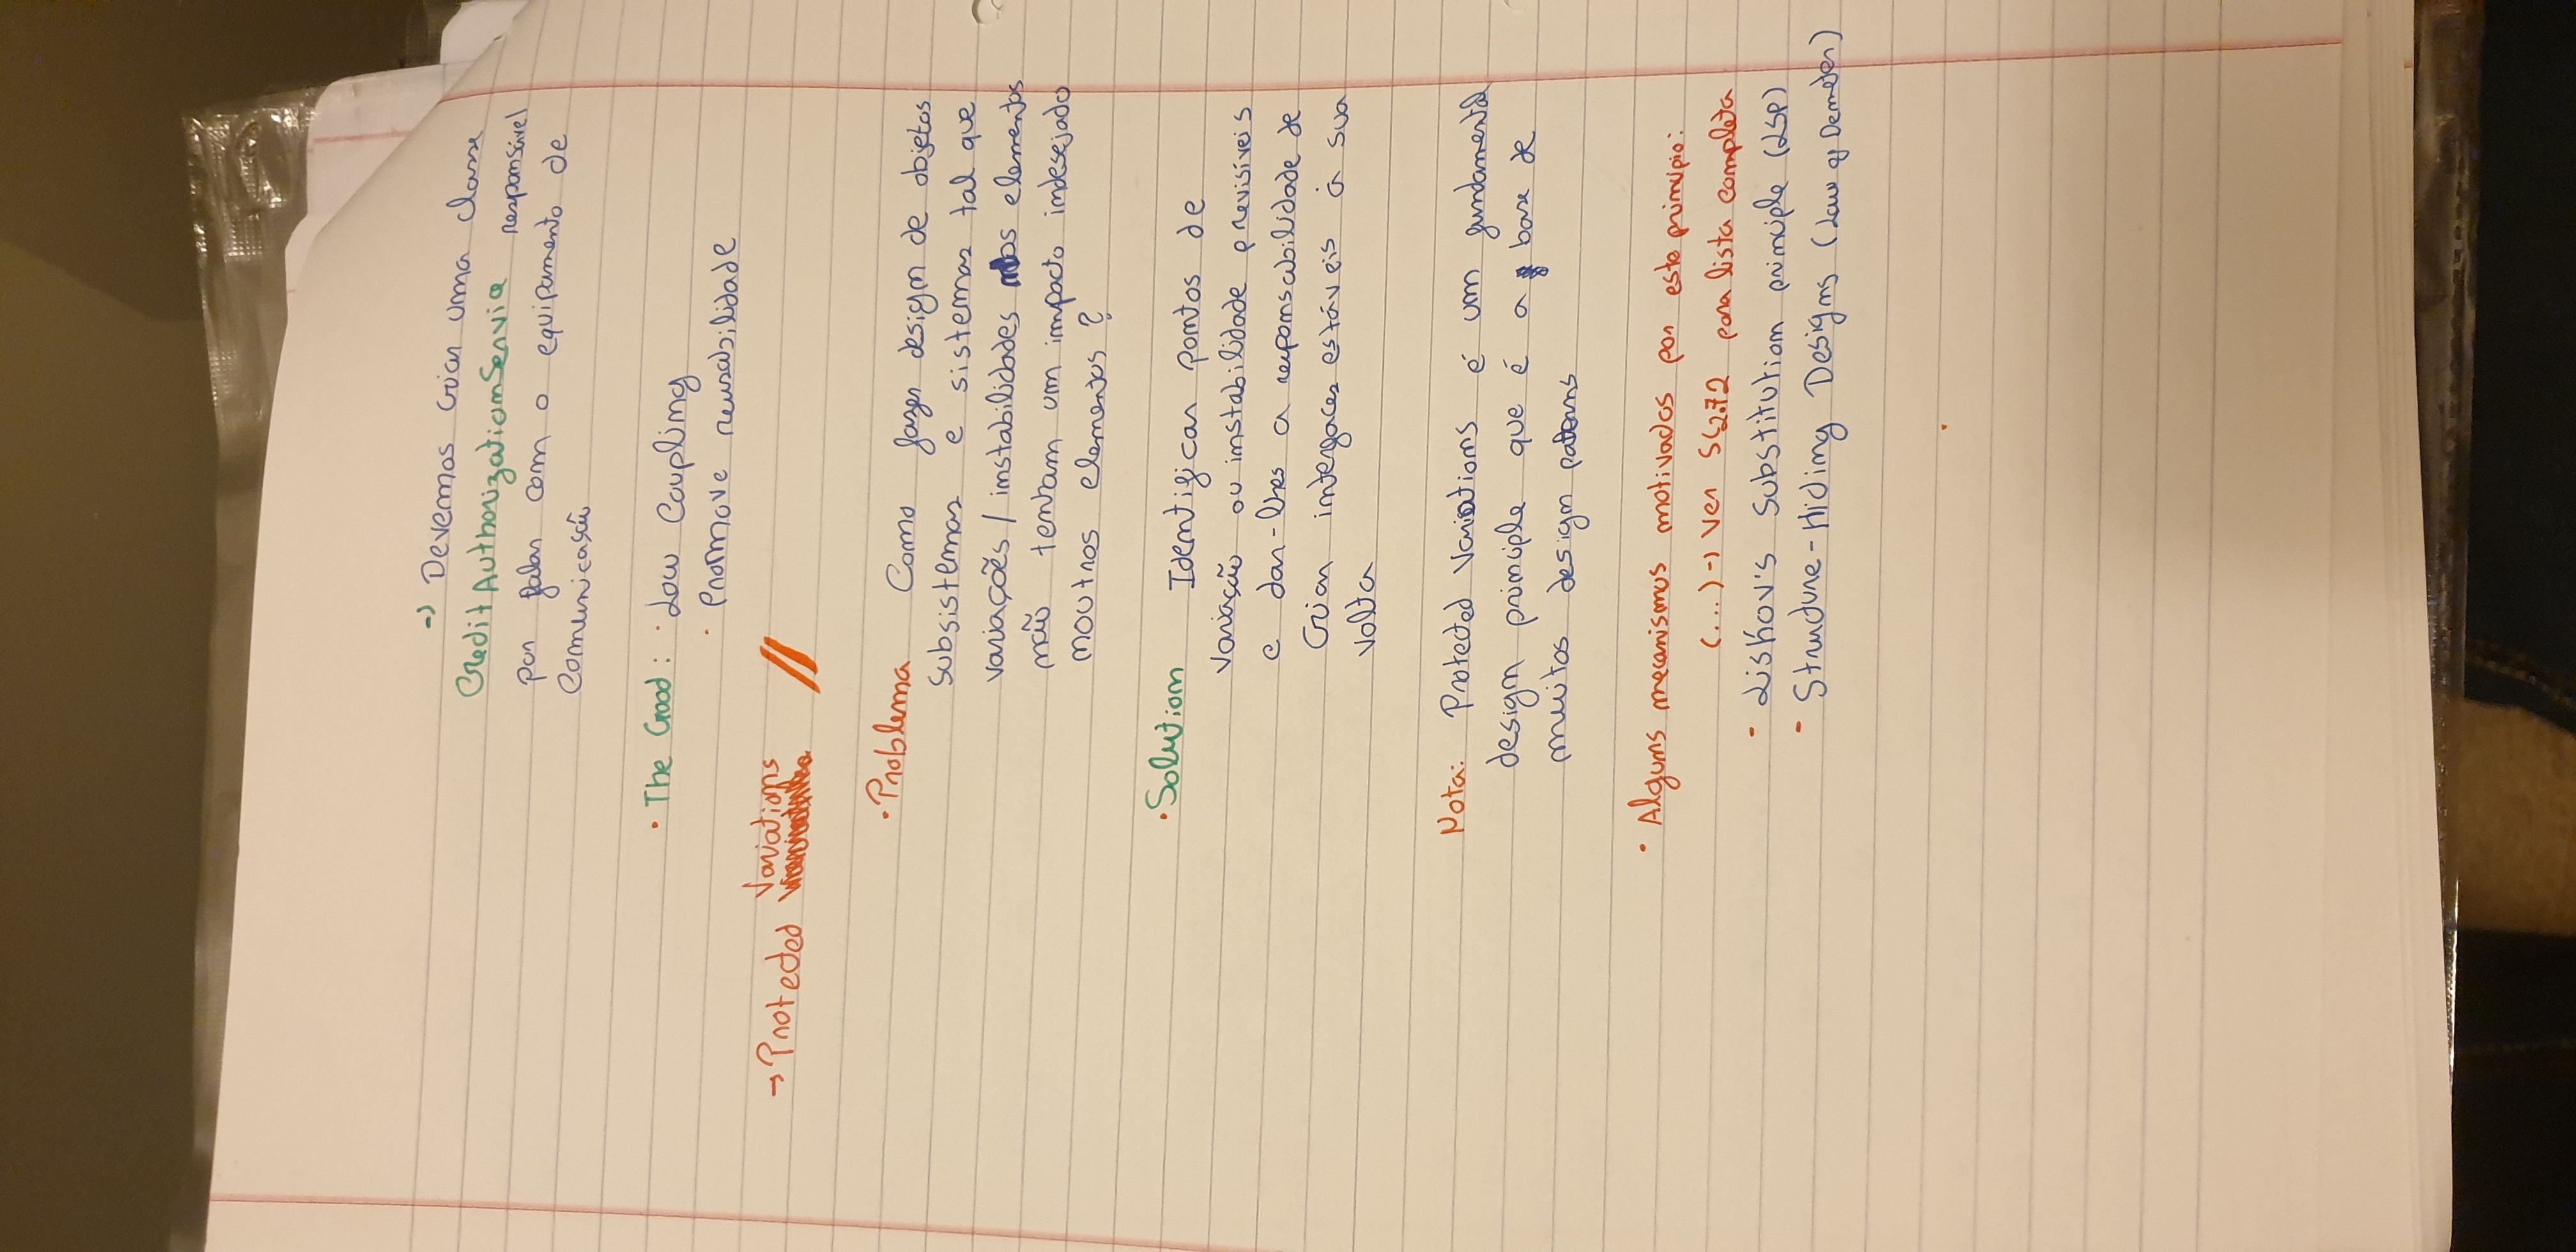 -> Devemos criar uma classe
CreditAuthorizationService responsável
por falar com o equipamento de
comunicação
• The Good: · Low Coupling
· Promove reusabilidade
-> Protected Variations //
• Problema Como fazer design de objetos
subsistemas e sistemas tal que
variações / instabilidades nos elementos
não tenham um impacto indesejado
noutros elementos?
• Solution Identificar pontos de
variação ou instabilidade previsíveis
e dar-lhes a responsabilidade de
criar interfaces estáveis à sua
volta
Nota: Protected Variations é um fundamental
design principle que é a base de
muitos design patterns
• Alguns mecanismos motivados por este principio:
(...) -> Ver SL2.72 para lista completa
- Liskov's Substitution principle (LSP)
- Structure-Hiding Designs (Law of Demeter)